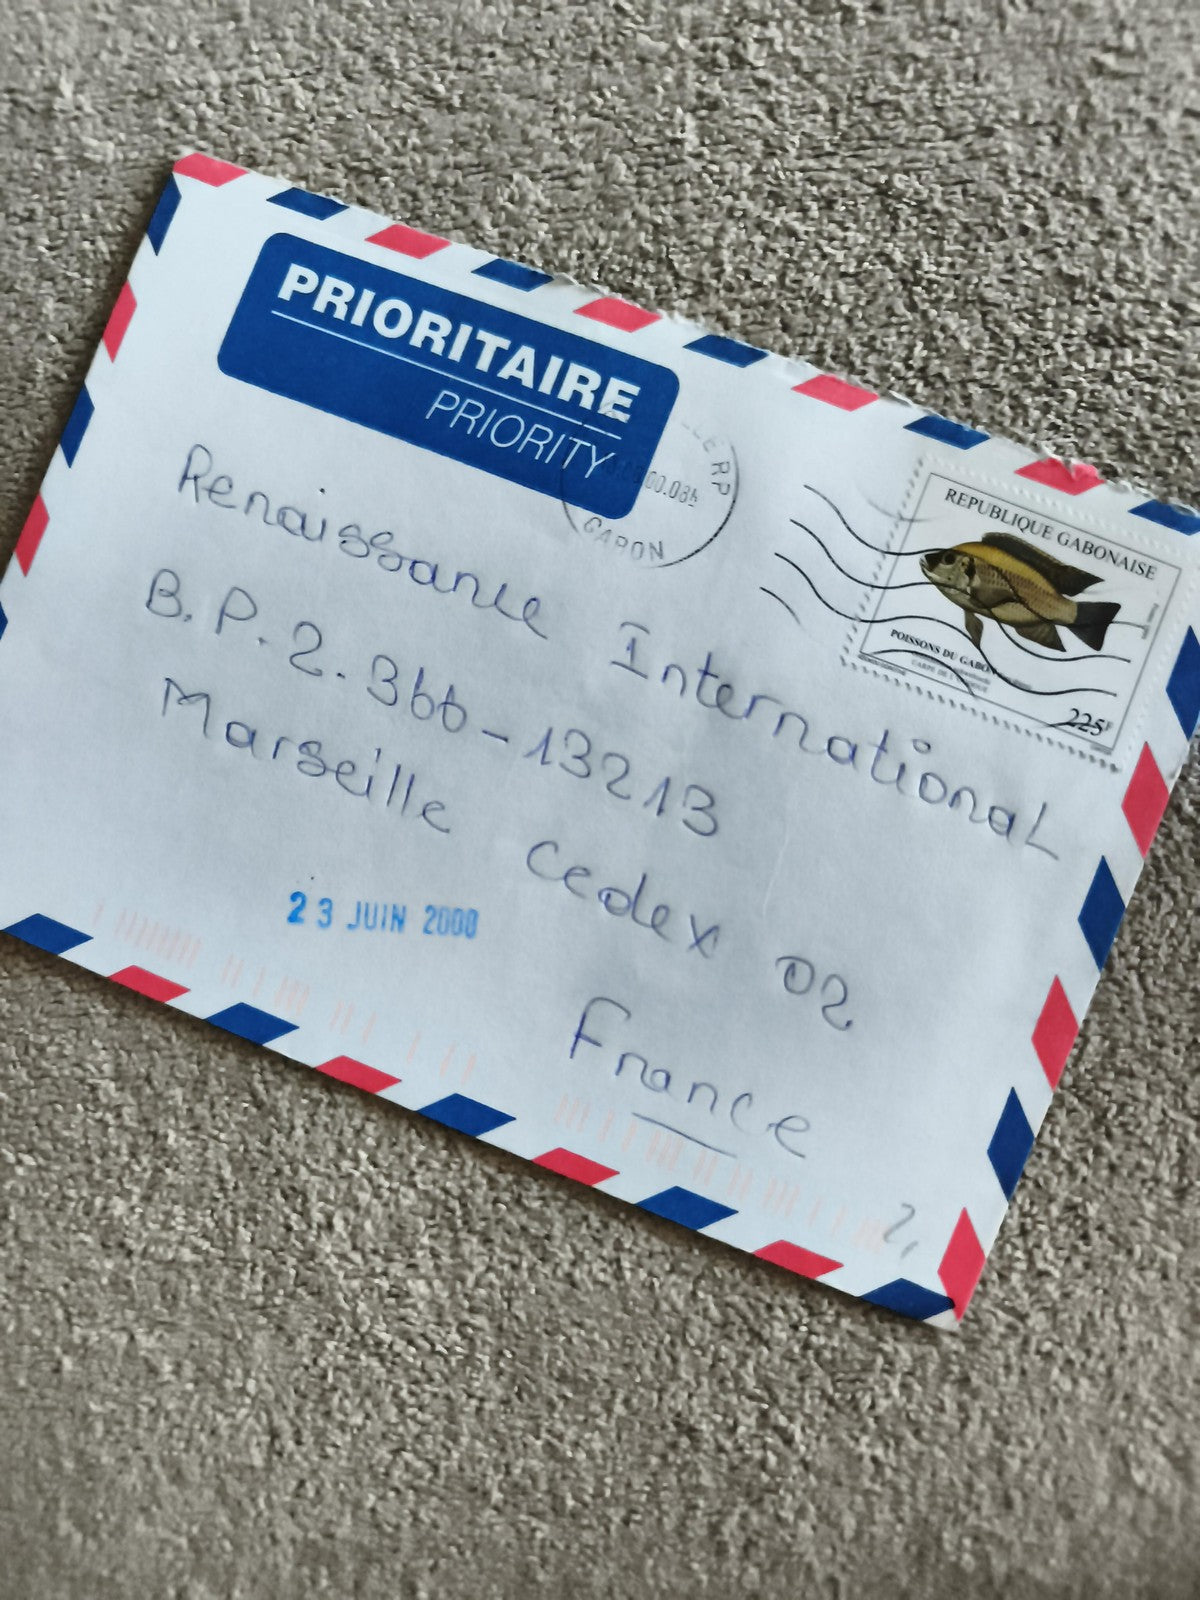 PRIORITAIRE
PRIORITY
GABON
REPUBLIQUE GABONAISE
POISSONS DU GABON
225F
Renaissance International
B.P. 2.366-13213
Marseille Cedex 02
France
23 JUIN 2000
2,